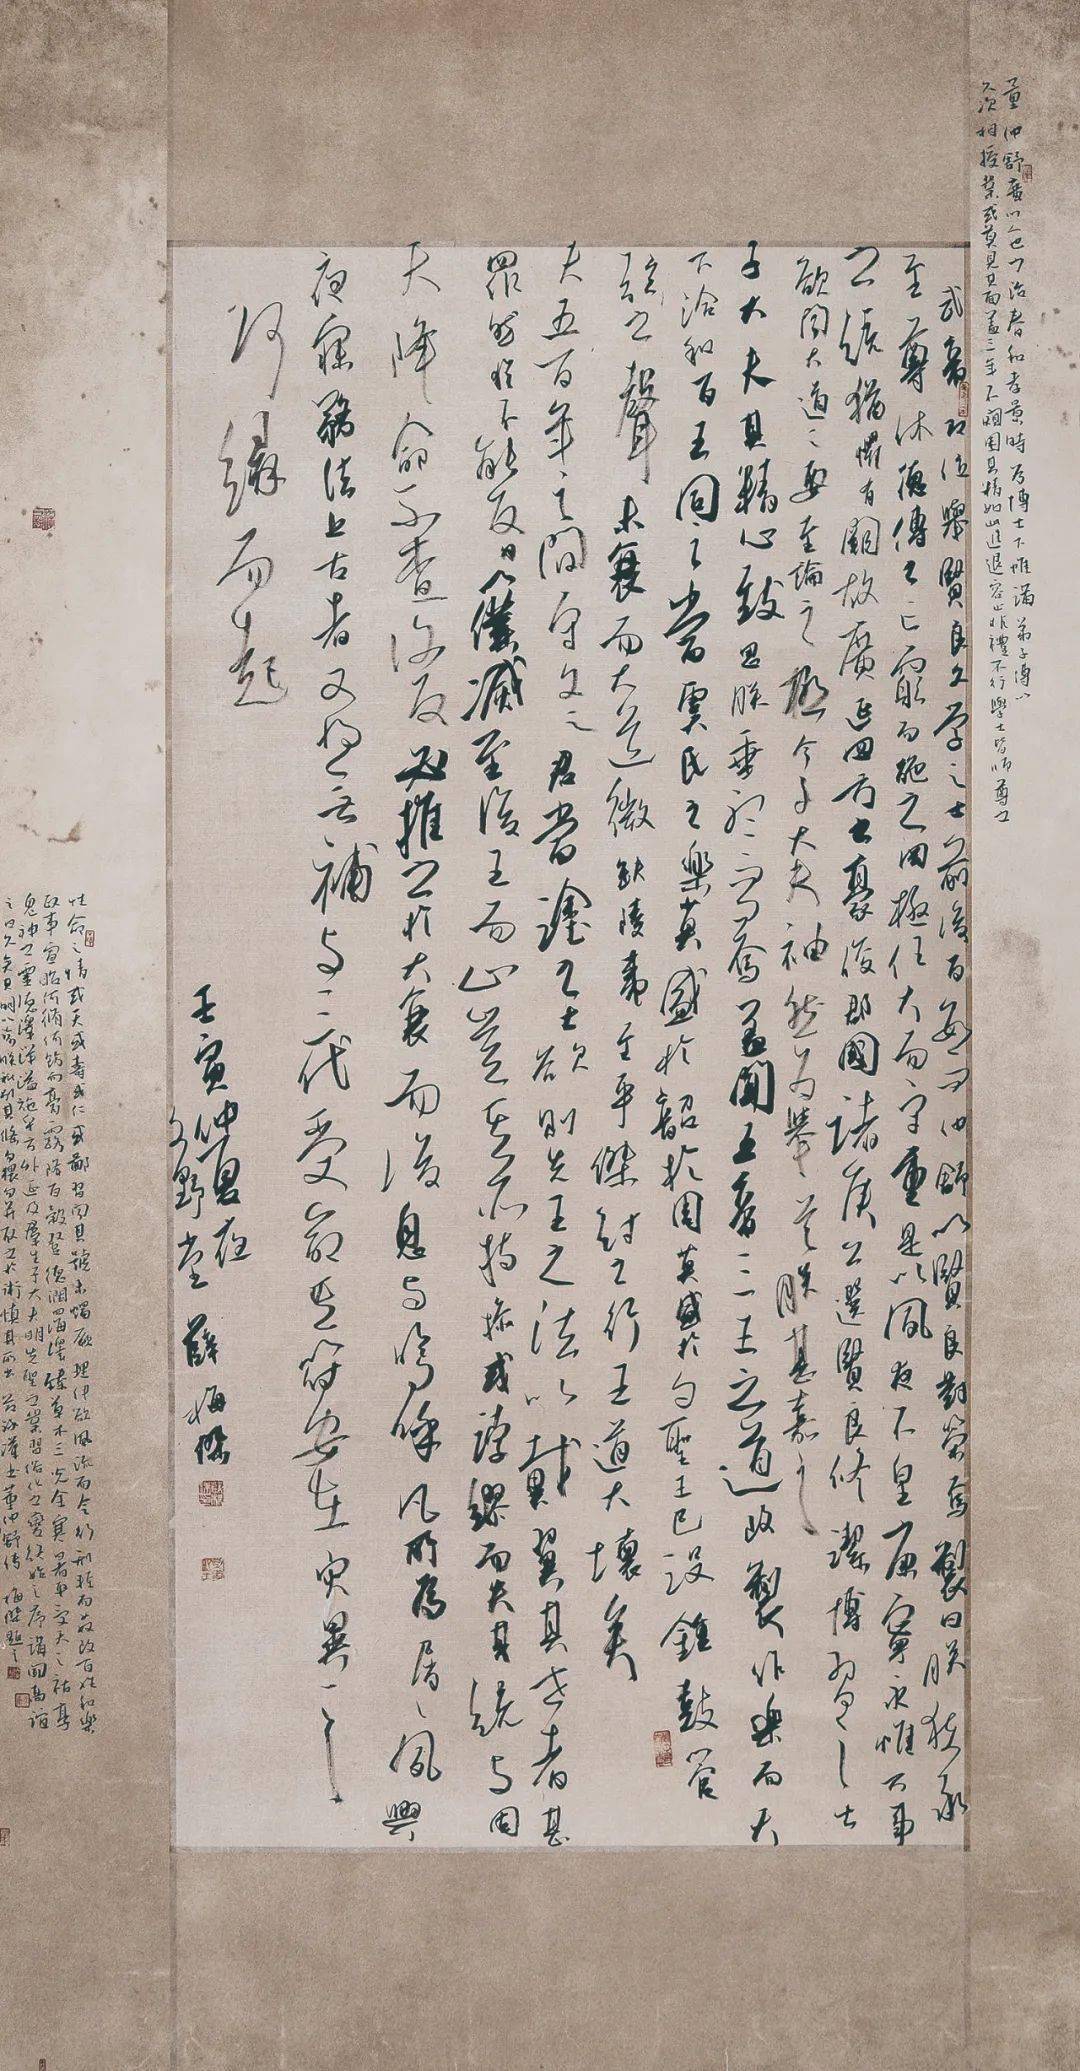 董仲舒廣川人也少治春秋孝景時為博士下帷講誦弟子傳以
久次相授業或莫見其面蓋三年不窺園其精如此進退容止非禮不行學士皆師尊之
武帝即位舉賢良文學之士前後百數而仲舒以賢良對策焉製曰朕獲承
至尊休德傳之亡窮而施之罔極任大而守重是以夙夜不皇康寧永惟萬事
之統猶懼有闕故廣延四方之豪俊郡國諸侯公選賢良修潔博習之士
欲聞大道之要至論之極今子大夫袖然為舉首朕甚嘉之
子大夫其精心致思朕垂聽而問焉蓋聞五帝三王之道改製作樂而天
下洽和百王同之當虞氏之樂莫盛於韶於周莫盛於勺聖王已沒鍾鼓管
弦之聲未衰而大道微缺陵夷至乎桀紂之行王道大壞矣
夫五百年之間守文之君當塗之士欲則先王之法以戴翼其世者甚
眾然猶不能反日以僕滅至後王而止豈其所持操或誖繆而失其統與固
天降命不查復反必推之於大衰而後息與嗚呼凡所為屑屑夙興
夜寐務法上古者又將無補與三代受命其符安在災異之
何緣而起
壬寅仲夏夜
文野堂薛梅傑
性命之情或夭或壽或仁或鄙習聞其號未燭厥理伊欲風流而令行刑輕而奸改百姓和樂
政事宣昭何脩何飭而膏露降百穀登德潤四海澤臻草木三光全寒暑平受天之祜享
鬼神之靈德澤洋溢施乎方外延及群生子大夫明先聖之業習俗化之變終始之序講聞高誼
之日久矣其明以諭朕科別其條勿猥勿并取之於術慎其所出 節錄漢書董仲舒傳 梅傑題之